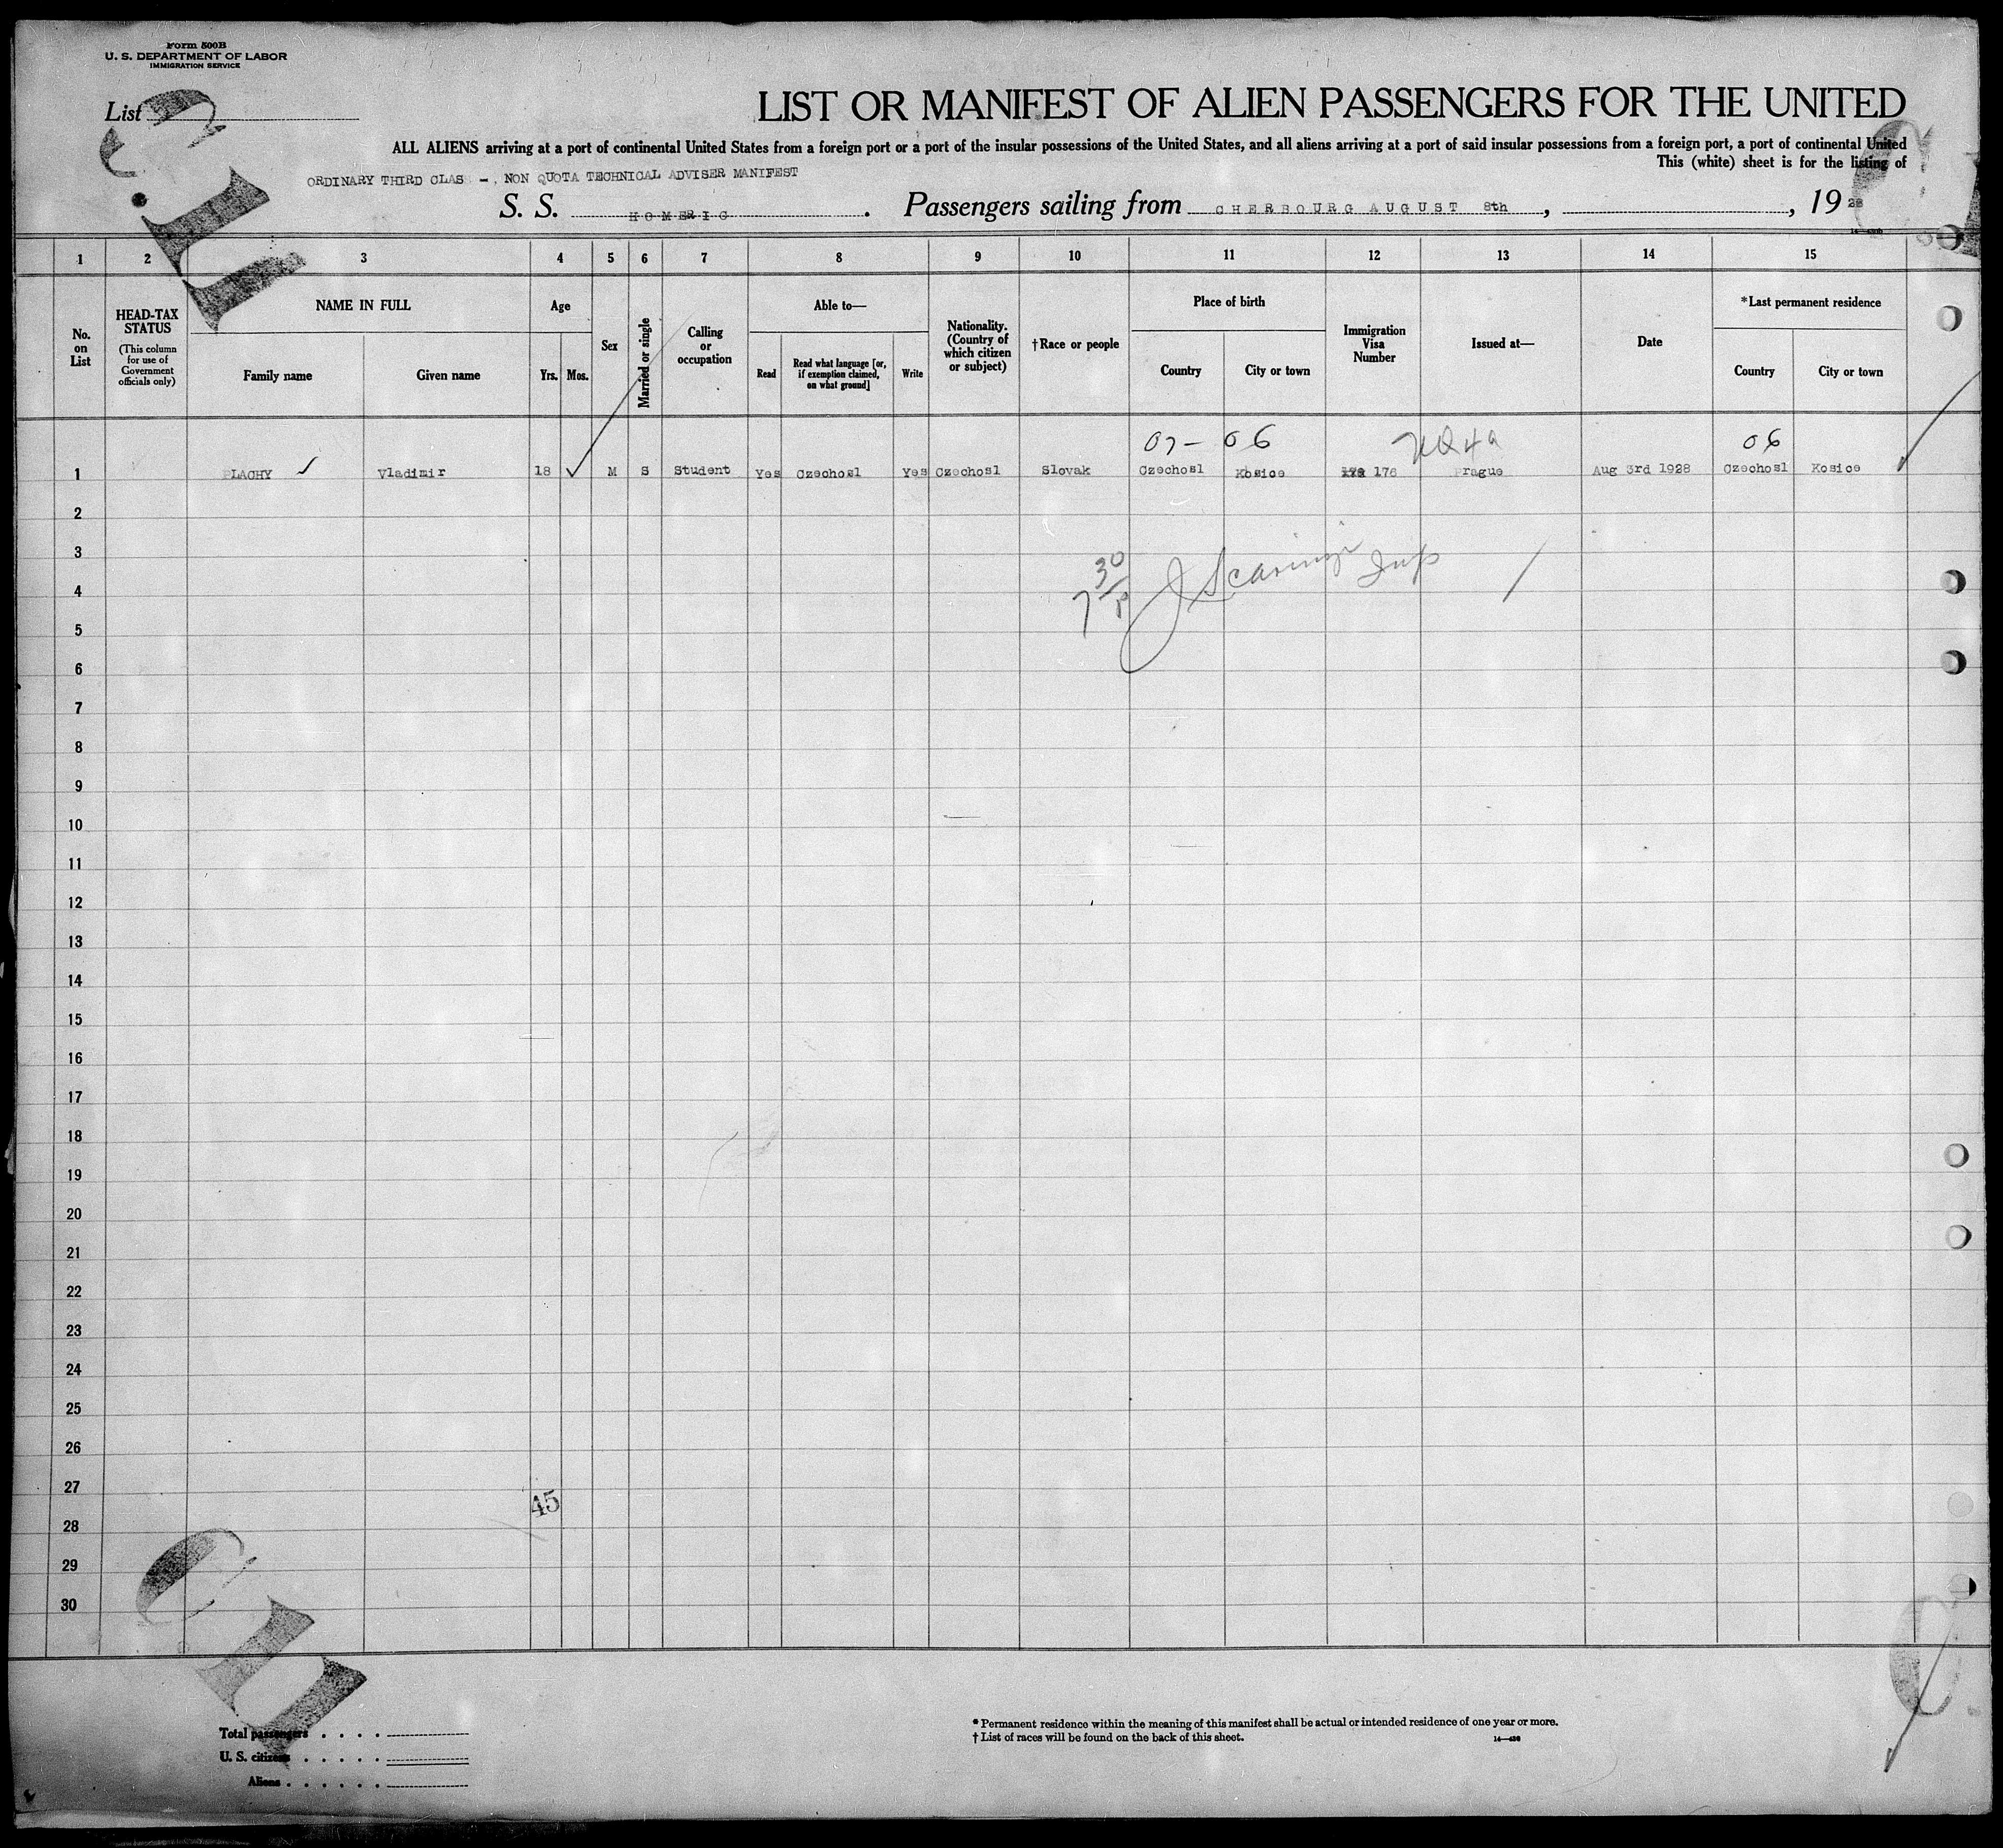 Form 500B
U. S. DEPARTMENT OF LABOR
IMMIGRATION SERVICE
List
LIST OR MANIFEST OF ALIEN PASSENGERS FOR THE UNITED
ALL ALIENS arriving at a port of continental United States from a foreign port or a port of the insular possessions of the United States, and all aliens arriving at a port of said insular possessions from a foreign port, a port of continental United
This (white) sheet is for the listing of
ORDINARY THIRD CLAS -, NON QUOTA TECHNICAL ADVISER MANIFEST
S. S. HOMERIC. Passengers sailing from CHERBOURG AUGUST 8th, , 1928
1 2 3 4 5 6 7 8 9 10 11 12 13 14 15
No. on List
HEAD-TAX STATUS
(This column for use of Government officials only)
NAME IN FULL
Family name
Given name
Age
Yrs.
Mos.
Sex
Married or single
Calling or occupation
Able to—
Read
Read what language [or, if exemption claimed, on what ground]
Write
Nationality. (Country of which citizen or subject)
†Race or people
Place of birth
Country
City or town
Immigration Visa Number
Issued at—
Date
*Last permanent residence
Country
City or town
07- 06 NQ 4a 06
1 PLACHY Vladimir 18 M S Student Yes Czechosl Yes Czechosl Slovak Czechosl Kosice 176 Prague Aug 3rd 1928 Czechosl Kosice
2
3
4
7 30
Insp
5
6
7
8
9
10
11
12
13
14
15
16
17
18
19
20
21
22
23
24
25
26
27
45
28
29
30
C.U
CU
C
Total passengers
U. S. citizens
Aliens
* Permanent residence within the meaning of this manifest shall be actual or intended residence of one year or more.
† List of races will be found on the back of this sheet.
14—430